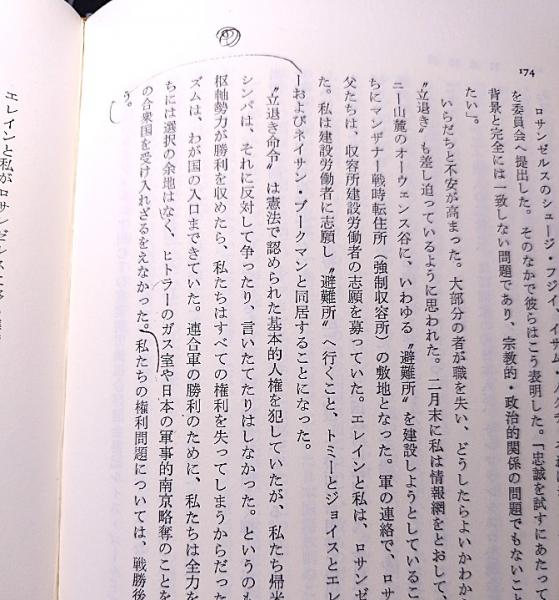 174
ロサンゼルスのシュージ・フジイ
を委員会へ提出した。そのなかで彼らはこう表明した。「忠誠を試すにあたって
背景と完全には一致しない問題であり、宗教的・政治的関係の問題でもないこと
たい」。
いらだちと不安が高まった。大部分の者が職を失い、どうしたらよいかわか
〝立退き〟も差し迫っているように思われた。二月末に私は情報網をとおして、
ニー山麓のオーウェンス谷に、いわゆる〝避難所〟を建設しようとしているこ
ちにマンザナー戦時転住所（強制収容所）の敷地となった。軍の連絡で、ロ
父たちは、収容所建設労働者の志願を募っていた。エレインと私は、ロサンゼ
た。私は建設労働者に志願し〝避難所〟へ行くこと、トミーとジョイスとエレ
ーおよびネイサン・ブークマンと同居することになった。
〝立退き命令〟は憲法で認められた基本的人権を犯していたが、私たち帰米
シンパは、それに反対して争ったり、言いたてたりはしなかった。というのも
枢軸勢力が勝利を収めたら、私たちはすべての権利を失ってしまうからだった
ズムは、わが国の入口まできていた。連合軍の勝利のために、私たちは全力を
ちには選択の余地はなく、ヒトラーのガス室や日本の軍事的南京略奪のことを
の合衆国を受け入れざるをえなかった。私たちの権利問題については、戦勝後
う。
エレインと私がロサンゼルス